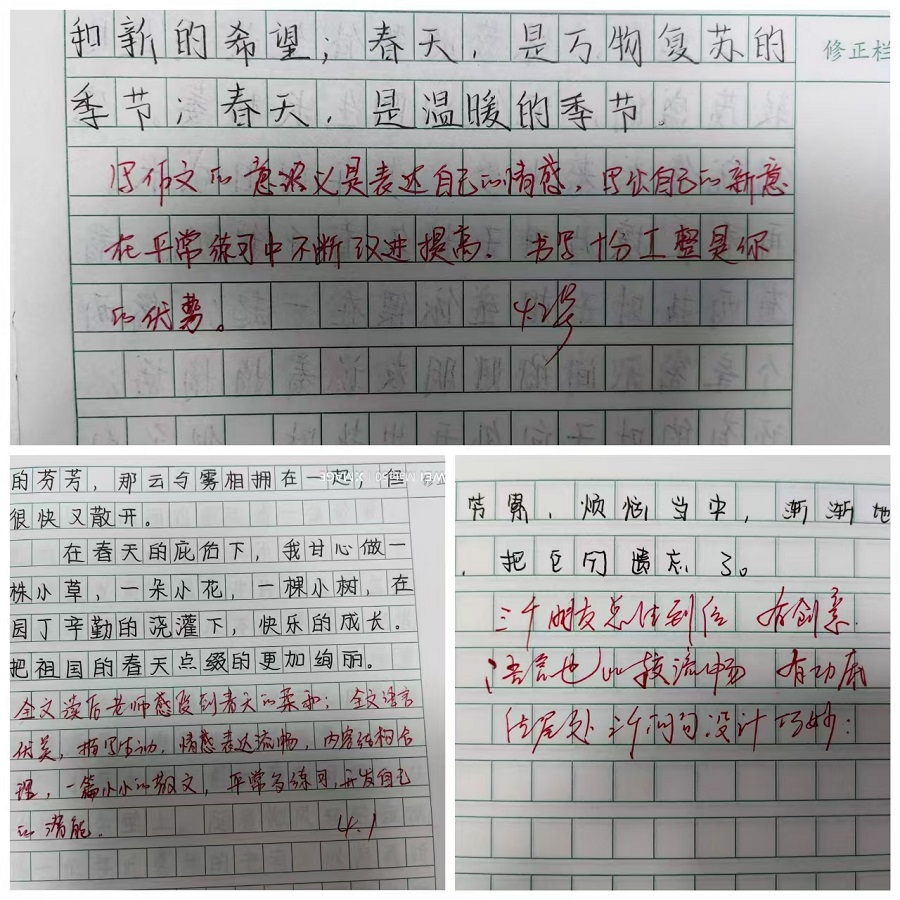 和新的希望；春天，是万物复苏的
修正栏
季节；春天，是温暖的季节。
写作文的意义是表达自己的情感，写出自己的新意
在平常练习中不断改进提高。书写十分工整是你
的优势。
的芬芳，那云与雾相拥在一起，但
很快又散开。
在春天的庇佑下，我甘心做一
株小草，一朵小花，一棵小树，在
园丁辛勤的浇灌下，快乐的成长。
把祖国的春天点缀的更加绚丽。
全文读后老师感受到春天的美妙；全文语言
优美，描写生动，情感表达流畅，内容结构合
理，一篇小小的散文，平常多练习，开发自己
的潜能。 4.1
节累，烦恼当中，渐渐地
把它们遗忘了。
三个朋友总结到位 有创意
语言也比较流畅 有功底
结尾处三个问句设计巧妙：